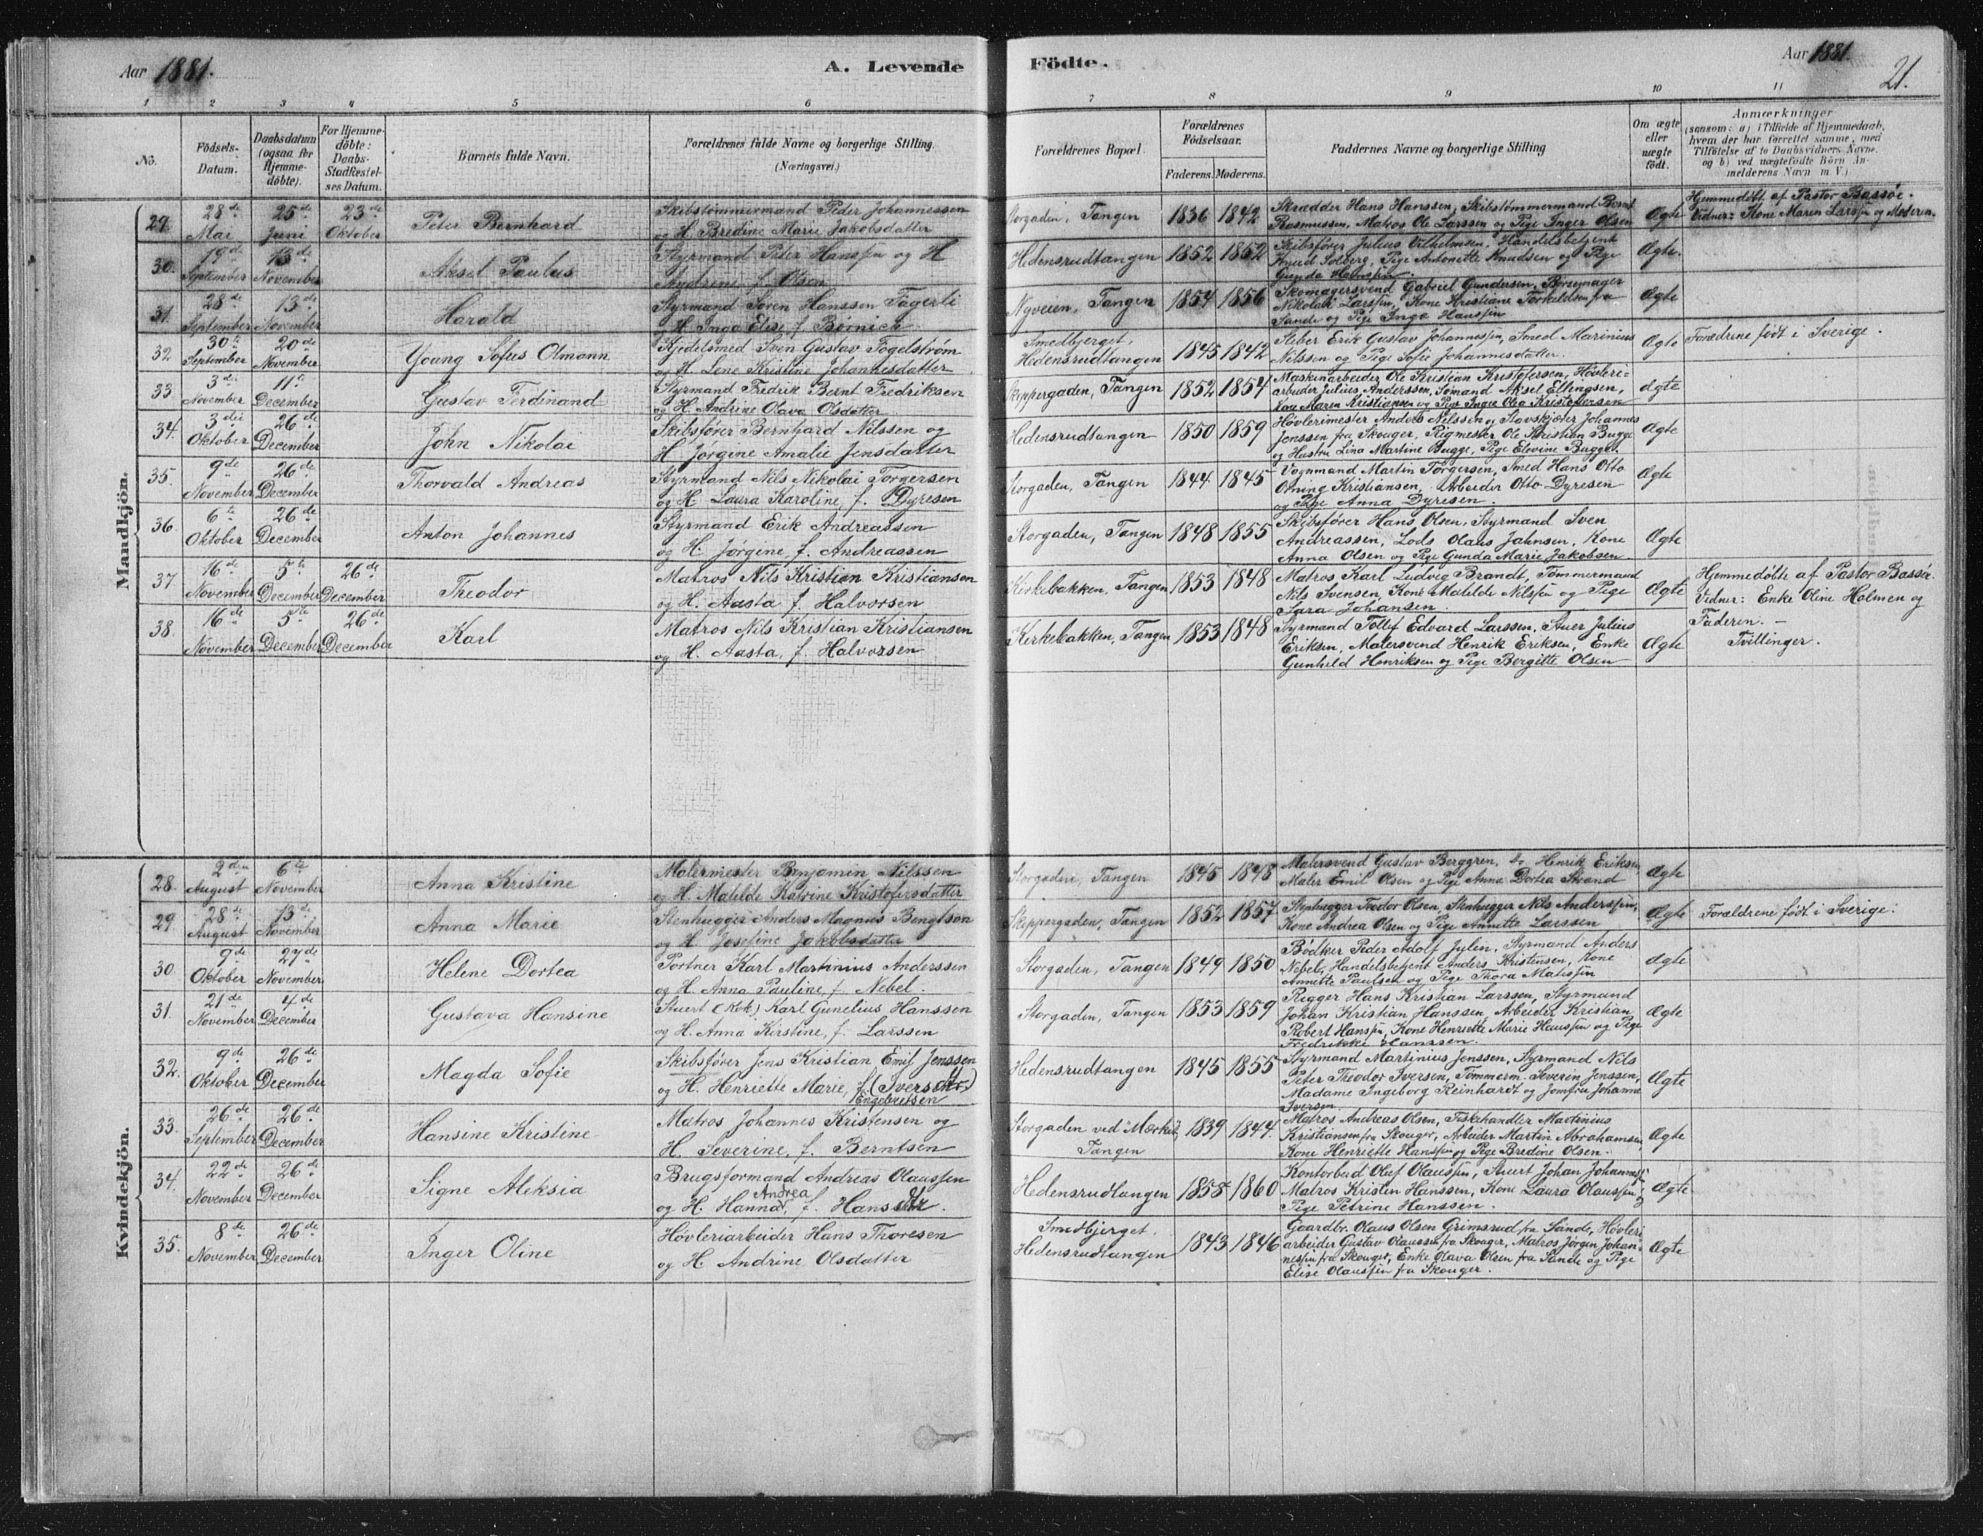 Aar 1881.
A. Levende
Födte.
Aar 1881.
21.
1 2 3 4 5 6 7 8 9 10 11
No.
Födsels-
Datum.
Daabsdatum
(ogsaa for
Hjemme-
döbte).
For Hjemme-
döbte:
Daabs-
Stadfæstel-
ses Datum.
Barnets fulde Navn.
Forældrenes fulde Navne og borgerlige Stilling.
(Næringsvei.)
Forældrenes Bopæl.
Forældrenes
Födselsaar.
Faderens. Moderens.
Faddernes Navne og borgerlige Stilling
Om ægte
eller
uægte
födt.
Anmærkninger
(saasom: a) i Tilfælde af Hjemmedaab,
hvem der har forrettet samme, med
Tilföielse af to Daabsvidners Navne,
og b) ved uægtefödte Börn An-
melderens Navn m. V.)
Mandkjön.
29. 28de Mai 25de Juni 23de Oktober
Peter Bernhard
Skibstømmermand Peder Johannessen
og H. Bredine Marie Jakobsdatter
Storgaden, Tangen 1836 1842
Skrædder Hans Hanssen, Skibstømmermand Bernt
Rasmussen, Matros Ole Larssen og Pige Inger Olsen
Ægte
Hjemmedøbt af Pastor Bassøe.
Vidner: Kone Maren Larssen og Moderen.
30. 19de September 13de November
Aksel Paulus
Styrmand Peter Hanssen og H
Andrine f. Olsen
Hedensrudtangen 1852 1852
Skibsfører Julius Vilhelmsen, Handelsbetjent
Knud Solberg, Pige Antonette Knudsen og Pige
Gunda Hanssen.
Ægte.
31. 28de September 13de November
Harald
Styrmand Søren Hanssen Fagerli
H. Inga Elise f. Børnick
Nyveien, Tangen 1854 1856
Skomagersvend Gabriel Gundersen, Børsemager
Nikolai Larssen, Kone Kristiane Torkeldsen fra
Sande og Pige Inga Hanssen
Ægte
32 30te September 20de November
Young Sofus Olmann
Kjedelsmed Sven Gustav Fogelstrøm
og H. Lene Kristine Johannesdatter
Smedbjerget,
Hedensrudtangen 1845 1842
Støber Erik Gustav Johannessen, Smed Marinius
Nilssen og Pige Sofie Johannesdatter.
Ægte
Forældrene født i Sverige.
33 3die November 11te December
Gustav Ferdinand
Styrmand Fredrik Bernt Fredriksen
og H. Andrine Olava Olsdatter
Skippergaden, Tangen 1852 1854
Maskinarbeider Ole Kristian Kristofersen, Høvleri-
arbeider Julius Anderssen, Sømand Aksel Ellingsen,
Kone Maren Kristiansen og Pige Inger Olea Kristofersen
Ægte
34. 3die Oktober 26de December
John Nikolai
Skibsfører Bernhard Nilssen og
H. Jørgine Amalie Jensdatter
Hedensrudtangen 1850 1859
Høvlerimester Anders Nilssen og Stavskjører Johannes
Jenssen fra Skouger, Rigmester Ole Kristian Bugge
og Hustru Lina Martine Bugge, Pige Elevine Bugge.
Ægte
35. 9de November 26de December
Thorvald Andreas
Styrmand Nils Nikolai Torgersen
og H. Laura Karoline, f. Dyresen
Storgaden, Tangen 1844 1845
Vognmand Martin Torgersen, Smed Hans Otto
Orning Kristiansen, Arbeider Otto Dyresen
og Pige Anna Dyresen.
Ægte
36. 6te Oktober 26de December
Anton Johannes
Styrmand Erik Andreassen
og H. Jørgine, f. Andreassen
Storgaden, Tangen 1848 1855
Skibsfører Hans Olsen, Styrmand Sven
Andreassen, Lods Olaus Jahnsen, Kone
Anna Olsen og Pige Gunda Marie Jakobsen
Ægte
37 16de November 5te December 26de December
Theodor
Matros Nils Kristian Kristiansen
og H. Aasta f. Halvorsen
Kirkebakken, Tangen 1853 1848
Matros Karl Ludvig Brandt, Tømmermand
Nils Svensen, Kone Matilde Nilssen og Pige
Sara Johansen.
Ægte
Hjemmedøbte af Pastor Bassøe.
Vidner: Enke Oline Holmen og
Faderen. —
38. 16de November 5te December 26de December
Karl
Matros Nils Kristian Kristiansen
og H. Aasta, f. Halvorsen
Kirkebakken, Tangen 1853 1848
Styrmand Tollef Edvard Larssen, Stuer Julius
Eriksen, Malersvend Henrik Eriksen, Enke
Gunhild Henriksen og Pige Bergitte Olsen
Ægte
Tvillinger.
Kvindekjön.
28. 2den August 6te November
Anna Kristine
Malermester Benjamin Nilssen
og H. Matilde Katrine Kristofersdatter
Storgaden, Tangen 1845 1848
Malersvend Gustav Berggren, do Henrik Eriksen
Maler Emil Olsen og Pige Anna Dortea Strand
Ægte
29. 28de August 13de November
Anna Marie
Stenhugger Anders Magnus Bengtson
og H. Josefine Jakobsdatter
Skippergaden, Tangen 1852 1857
Stenhugger Teodor Olsen, Stenhugger Nils Anderssen,
Kone Andrea Olsen og Pige Annette Larssen
Ægte
Forældrene født i Sverige.
30. 9de Oktober 27de November
Helene Dortea
Portner Karl Martinius Anderssen
og H. Anna Pauline, f. Nebel.
Storgaden, Tangen 1849 1850
Bødker Peder Adolf Julin, Styrmand Anders
Nebel, Handelsbetjent Anders Kristensen, Kone
Annette Paulsen og Pige Thora Matissen
Ægte
31. 21de November 4de December
Gustava Hansine
Stuert (Kok) Karl Gunelius Hanssen
og H. Anna Kirstine, f. Larssen
Storgaden, Tangen 1853 1859
Rigger Hans Kristian Larssen, Styrmand
Johan Kristian Hanssen, Arbeider Kristian
Robert Hanssen, Kone Henriette Marie Hanssen og Pige
Fredrikke Hanssen.
Ægte
32. 9de Oktober 26de December
Magda Sofie
Skibsfører Jens Kristian Emil Jenssen
og H. Henriette Marie, f. (Iversdtr.)
Engebretsen
Hedensrudtangen 1845 1855
Styrmand Martinius Jenssen, Styrmand Nils
Peter Theodor Iversen, Tømmerm. Severin Jenssen,
Madame Ingeborg Reinhardt og Jomfru Johanna
Iversen
Ægte
33. 26de September 26de December
Hansine Kristine
Matros Johannes Kristensen og
H. Severine, f. Berntsen
Storgaden ved Merket,
Tangen 1839 1844.
Matros Andreas Olsen, Fiskehandler Martinius
Kristiansen fra Skouger, Arbeider Martin Abrahamsen,
Kone Henriette Hanssen og Pige Bredine Olsen.
Ægte
34. 22de November 26de December
Signe Aleksia
Brugsformand Andreas Olaussen
og H. Hanna Andrea, f. Hansdtr.
Hedensrudtangen 1858 1860
Kontorbud Oluf Olaussen, Stuert Johan Johannessen
Matros Kristen Hanssen, Kone Laura Olaussen og
Pige Petrine Hanssen.
Ægte
35. 8de November 26de December
Inger Oline
Høvleriarbeider Hans Thoresen
og H. Andrine Olsdatter
Smedbjerget.
Hedensrudtangen 1843 1846
Gaardbr. Olaus Olsen Grimsrud fra Sande, Høvleri-
arbeider Gustav Olaussen fra Skouger, Matros Jørgen Johan-
nessen fra Skouger, Enke Olava Olsen fra Sande og Pige
Elise Olaussen fra Skouger.
Ægte